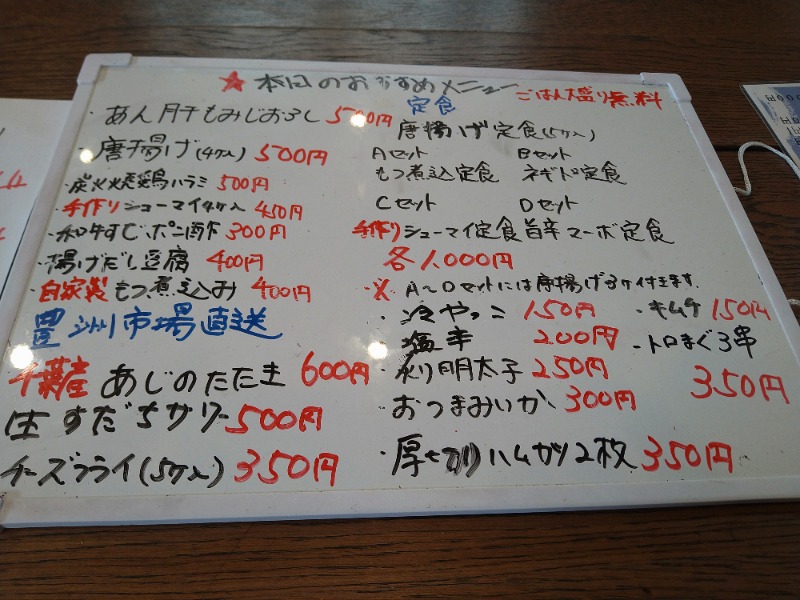 ★本日のおすすめメニュー
ごはん大盛り無料
あん肝もみじおろし 500円
・唐揚げ(4ヶ入) 500円
・炭火焼鶏ハラミ 500円
・手作りシューマイ4ヶ入 450円
・和牛すじポン酢 300円
・揚げだし豆腐 400円
・自家製もつ煮込み 400円
豊洲市場直送
千葉産 あじのたたき 600円
生すだちサワー 500円
チーズフライ(5ヶ入) 350円
定食
唐揚げ定食(5ヶ入)
Aセット Bセット
もつ煮込定食 ネギトロ定食
Cセット Dセット
手作りシューマイ定食 旨辛マーボ定食
各1,000円
※ A〜Dセットには唐揚げ3ヶ付きます.
・冷やっこ 150円
・キムチ 150円
・塩辛 200円
・トロまぐろ串 350円
・明太子 250円
・おつまみいか 300円
・厚切りハムカツ2枚 350円